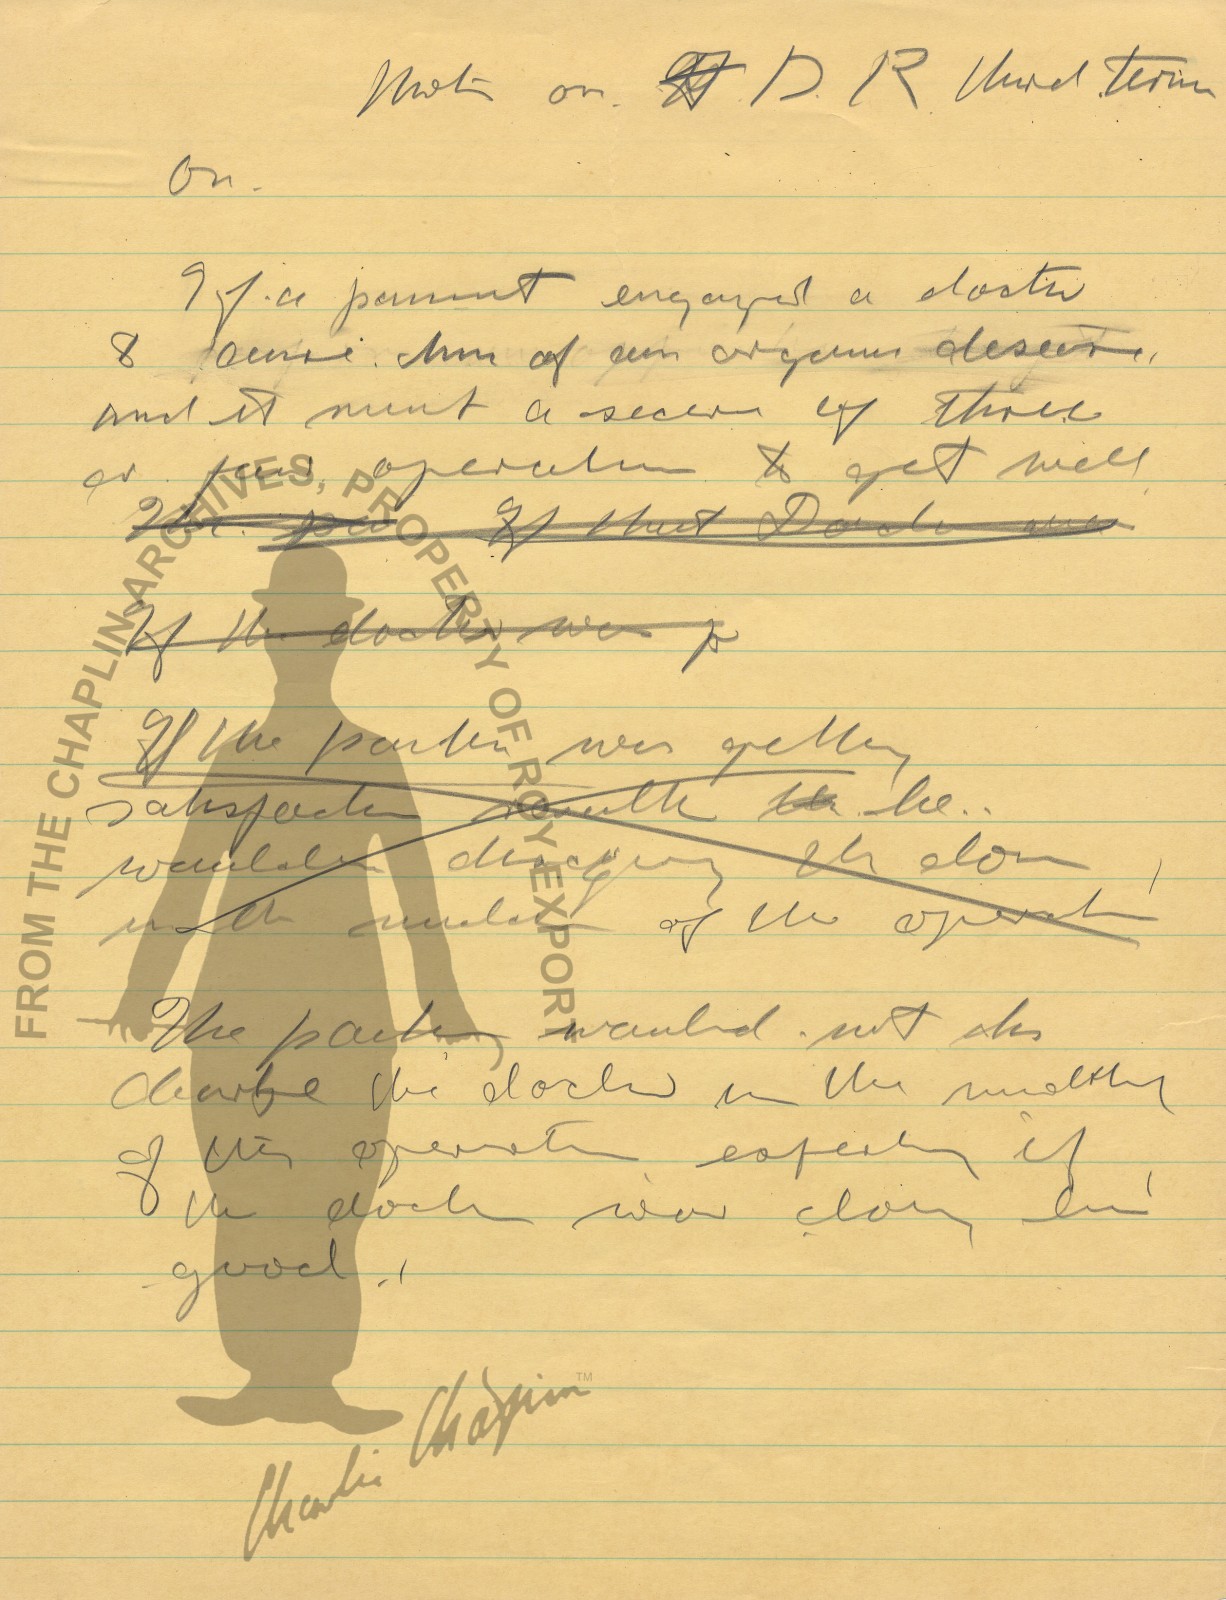 Note on F. D. R third term
On.
If a patient engaged a doctor
to cure him of an organic
and it ment a series of three
or four operation to get well
The. If that Doctor was
If the doctor was p
If the patien was getting
satisfaction result he..
wouldn the
in the middle of the operation
The patien would not dis
charge the doctor in the middle
of the operation especially if
the doctor was doing him
good.
FROM THE CHAPLIN ARCHIVES, PROPERTY OF ROY EXPORT
Charlie Chaplin™